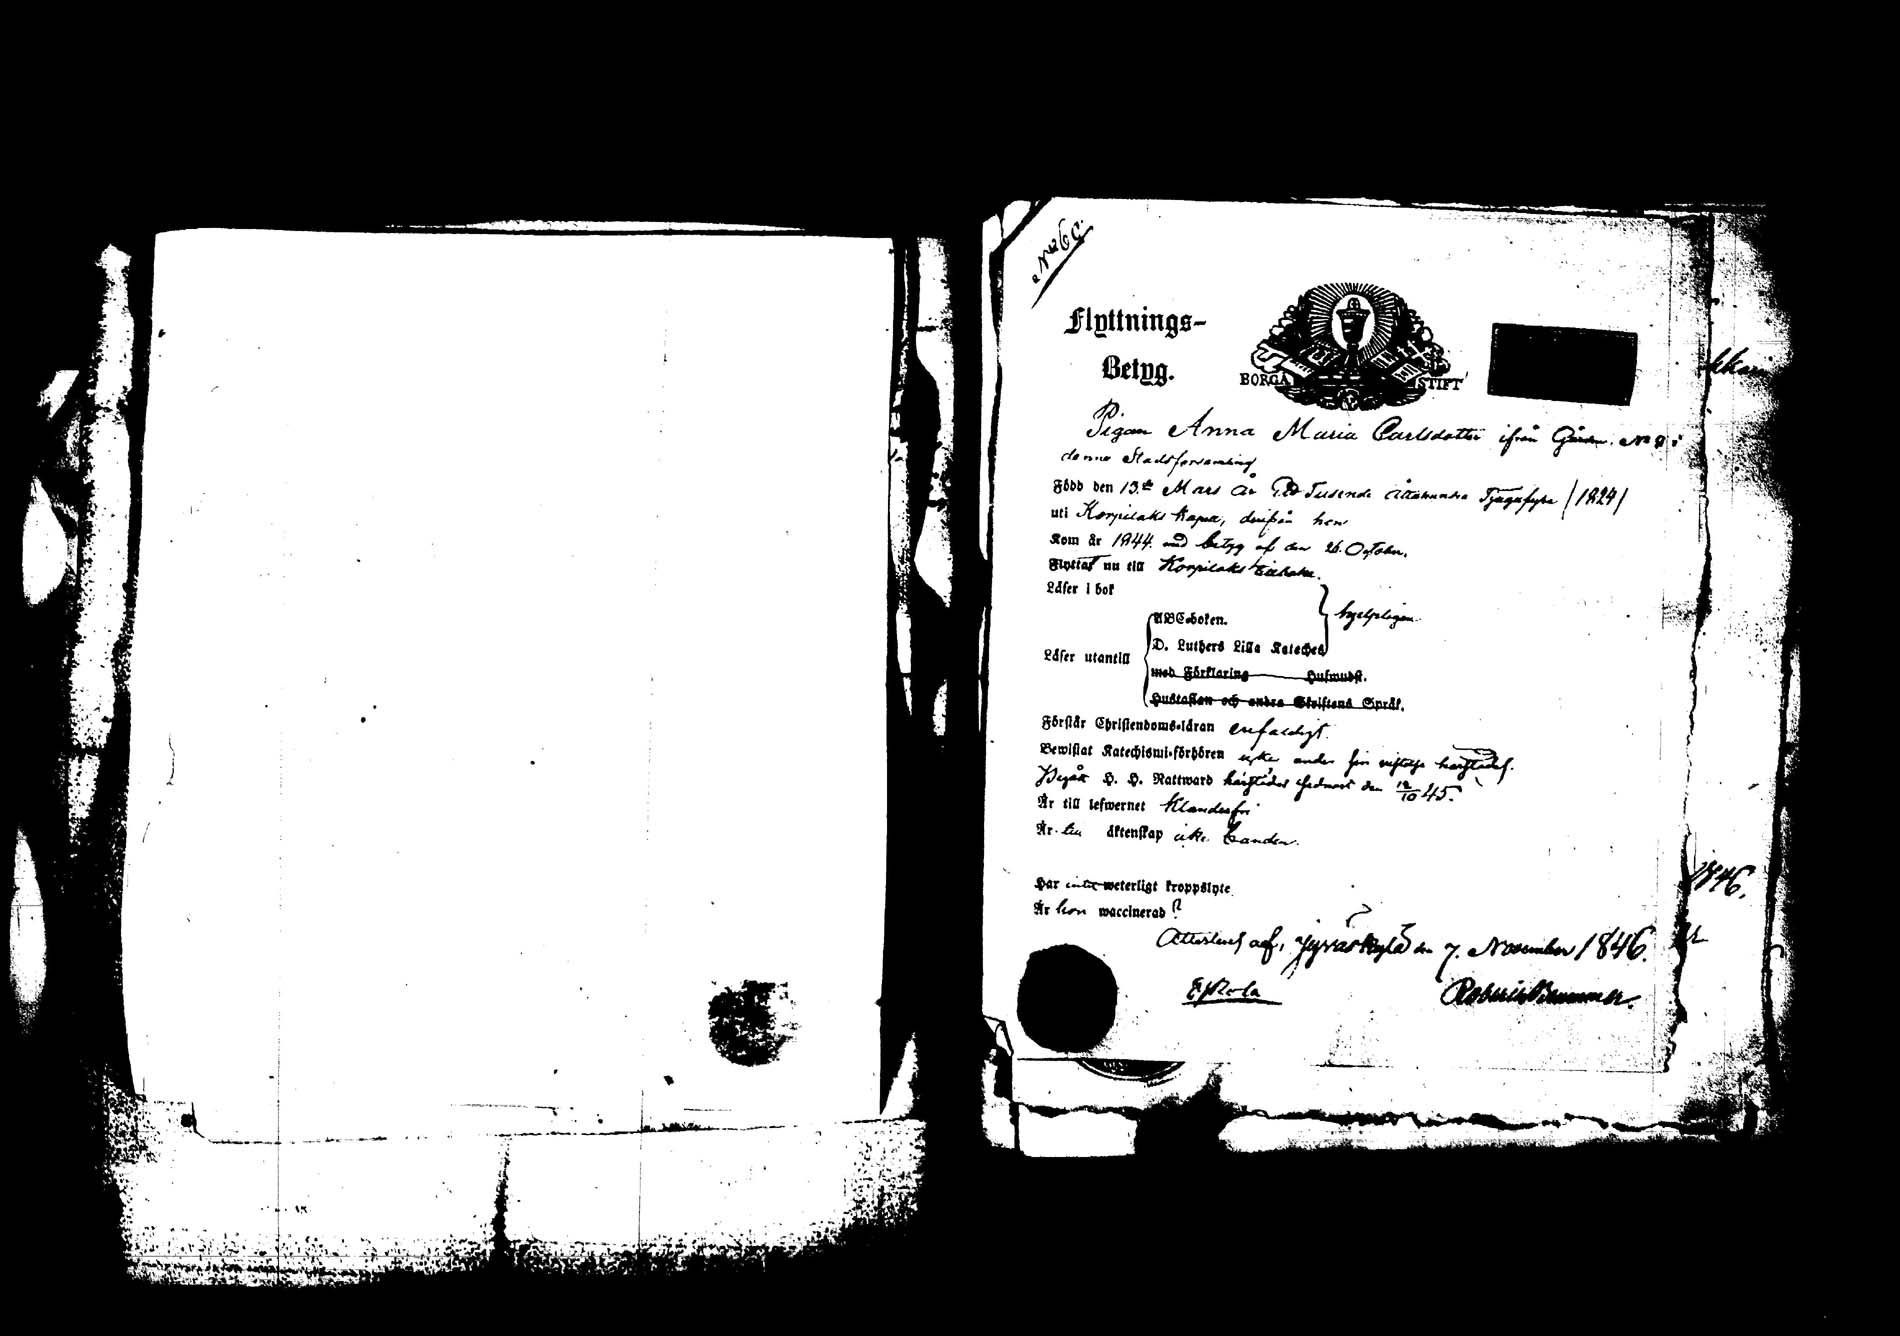 Flyttnings-
Betyg.
BORGÅ STIFT
Pigan Anna Maria Carlsdotter ifrån Gården No 9 i
denna Stadsförsamling
Född den 13de Mars År Ett Tusende Åttahundra Tjugufyra /1824/
uti Korpilaks Kapel, derifrån hon
Kom år 1844 med betyg af den 26 October.
Flyttat nu till Korpilaks tillbaka.
Läser i bok
ABC-boken.
D. Luthers Lilla Kateches
Läser utantill
med Förklaring Hufwudst.
Hustaflan och andra Skriftens Språk.
Förstår Christendoms-läran enfaldigt.
Bewistat Katechismi-förhören icke under sin
Begått H. H. Nattward den 12/10 45.
Är till lefwernet Klanderfri
Är till äktenskap icke bunden.
Har weterligt kroppslyte
Är hon waccinerad
Attesteras af, Jyväskylä den 7. November 1846.
1846.